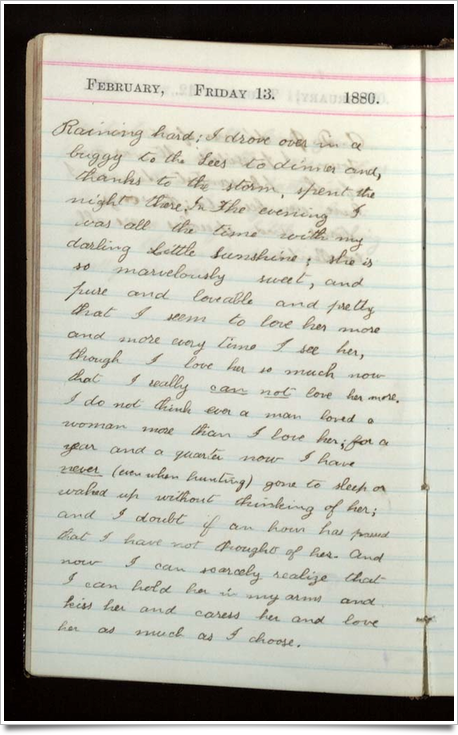 FEBRUARY, FRIDAY 13. 1880.
Raining hard; I drove over in a
buggy to the Lees to dinner and,
thanks to the storm, spent the
night there. In The evening I
was all the time with my
darling little sunshine; she is
so marvelously sweet, and
pure and loveable and pretty
that I seem to love her more
and more every time I see her,
though I love her so much now
that I really can not love her more.
I do not think ever a man loved a
woman more than I love her; for a
year and a quarter now I have
never (even when hunting) gone to sleep or
waked up without thinking of her;
and I doubt if an hour has passed
that I have not thought of her. And
now I can scarcely realize that
I can hold her in my arms and
kiss her and caress her and love
her as much as I choose.